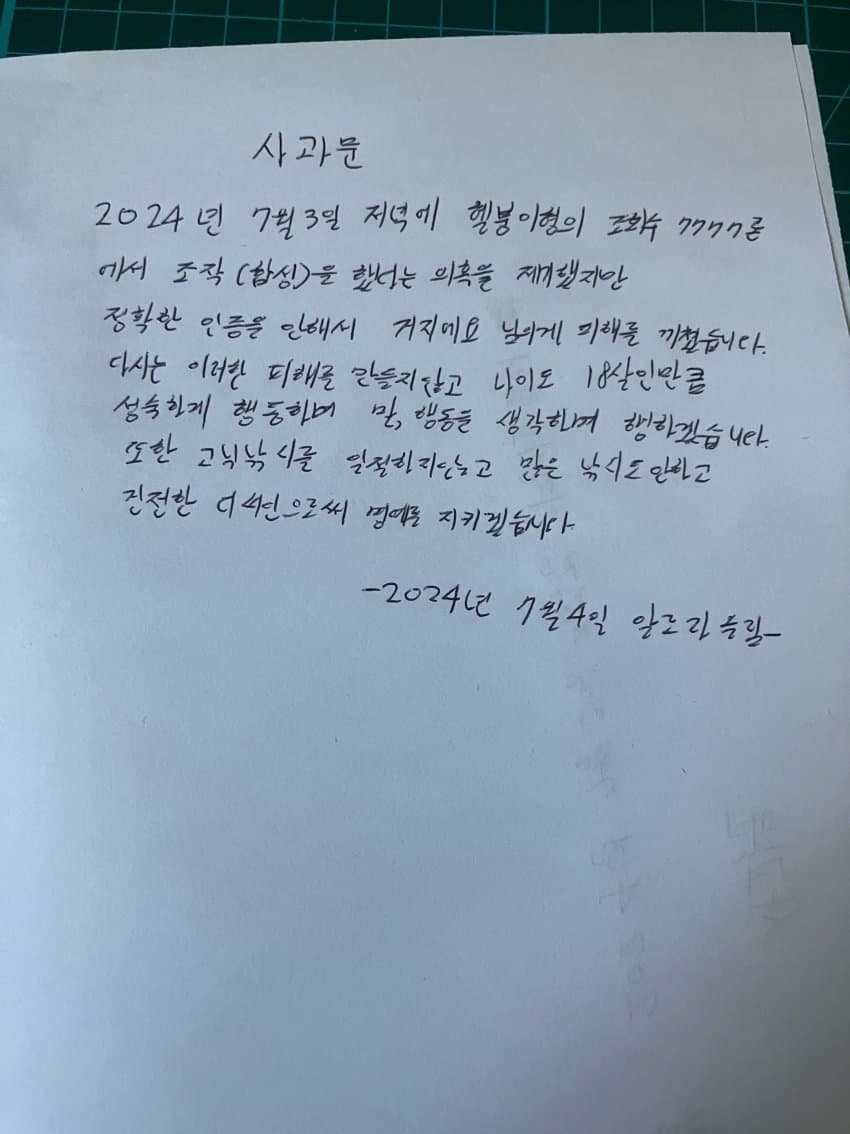 사과문
2024년 7월 3일 저녁에 헬붕이형의 조회수 7777론
에서 조작(합성)을 했다는 의혹을 제기했지만
정확한 인증을 안해서 거지에요 님에게 피해를 끼쳤습니다.
다시는 이러한 피해를 만들지않고 나이도 18살인만큼
성숙하게 행동하며 말, 행동을 생각하며 행하겠습니다.
또한 고닉낚시를 일절하지않고 많은 낚시도안하고
진전한 으로써 명예를 지키겠습니다
-2024년 7월 4일 올림-